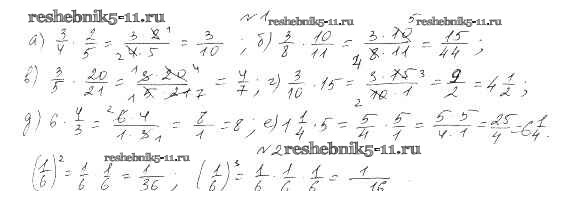 reshebnik5-11.ru
№1
reshebnik5-11.ru reshebnik5-11.ru
а) 3/4 · 2/5 = 3·2/4·5 = 3/10 ; б) 3/8 · 10/11 = 3·10/8·11 = 15/44 ;
в) 3/5 · 20/21 = 3·20/5·21 = 4/7 ; г) 3/10 · 15 = 3·15/10·1 = 9/2 = 4 1/2 ;
д) 6 · 4/3 = 6·4/1·3 = 8/1 = 8 ; е) 1 1/4 · 5 = 5/4 · 5/1 = 5·5/4·1 = 25/4 = 6 1/4 .
№2 reshebnik5-11.ru
reshebnik5-11.ru
(1/6)² = 1/6 · 1/6 = 1/36 ; (1/6)³ = 1/6 · 1/6 · 1/6 =